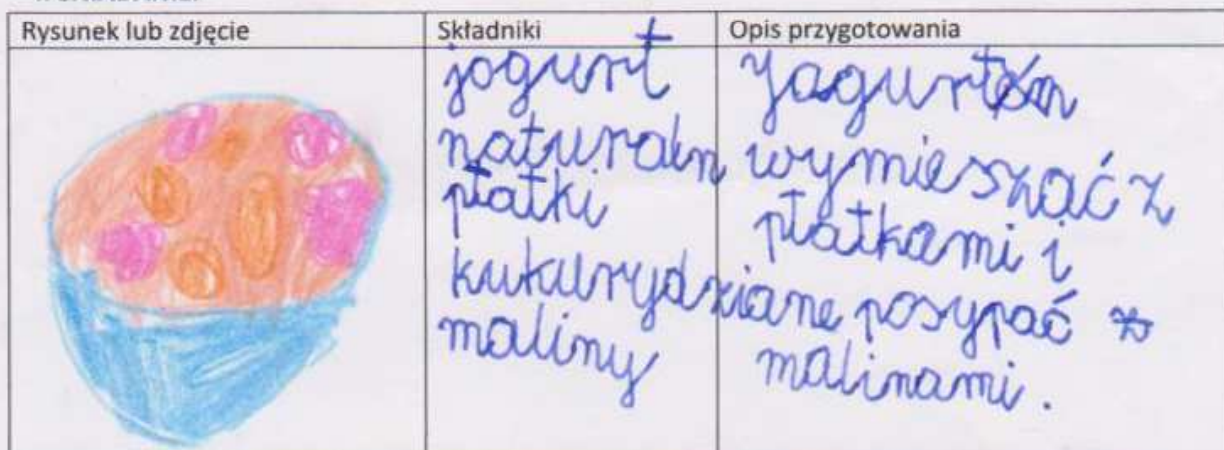 Rysunek lub zdjęcie
Składniki
Opis przygotowania
jogurt
naturaln
płatki
kukurydziane
maliny
wymieszać z
płatkami i
posypać
malinami.